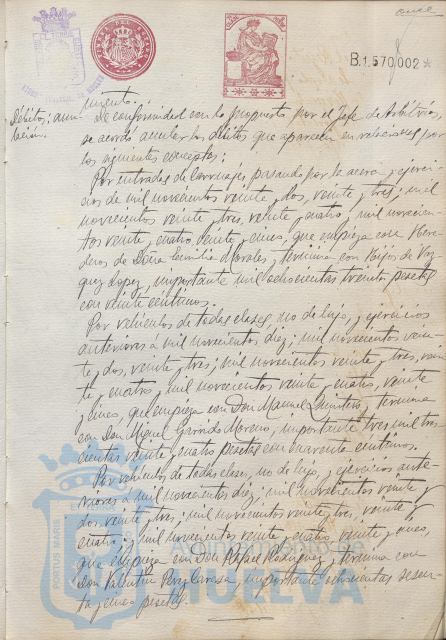 once
B.1570,002*
Débitos; anu-
lación.
miento.
De conformidad con lo propuesto por el Jefe de Arbitrios,
se acordó anular los débitos que aparecen en relaciones por
los siguientes conceptos:
Por entradas de carruajes pasando por la acera, ejerci-
cios de mil novecientos veinte y dos, veinte y tres; mil
novecientos veinte y tres, veinte y cuatro y mil novecien-
tos veinte y cuatro, veinte y cinco, que empieza con Here-
deros de Doña Emilia Morales y termina con Hijos de Vaz-
quez Lopez, importante mil ochocientas treinta pesetas
con veinte centimos.
Por vehículos de todas clases, no de lujo, y ejercicios
anteriores a mil novecientos diez; mil novecientos vein-
te y dos, veinte y tres; mil novecientos veinte y tres, vein-
te y cuatro y mil novecientos veinte y cuatro, veinte
y cinco, que empieza con Don Manuel Quintero y termina
con Don Miguel Garrido Moreno, importante tres mil tres
cientas veinte y cuatro pesetas con cuarenta centimos.
Por vehículos de todas clases, no de lujo, y ejercicios ante-
riores a mil novecientos diez; mil novecientos veinte y
dos, veinte y tres; mil novecientos veinte y tres, veinte y
cuatro y mil novecientos veinte y cuatro, veinte y cinco,
que empieza con Don Rafael Rodriguez y termina con
Don Valentin importante ochocientas sesen-
ta y cinco pesetas.
PORTUS MARIS
HUELVA